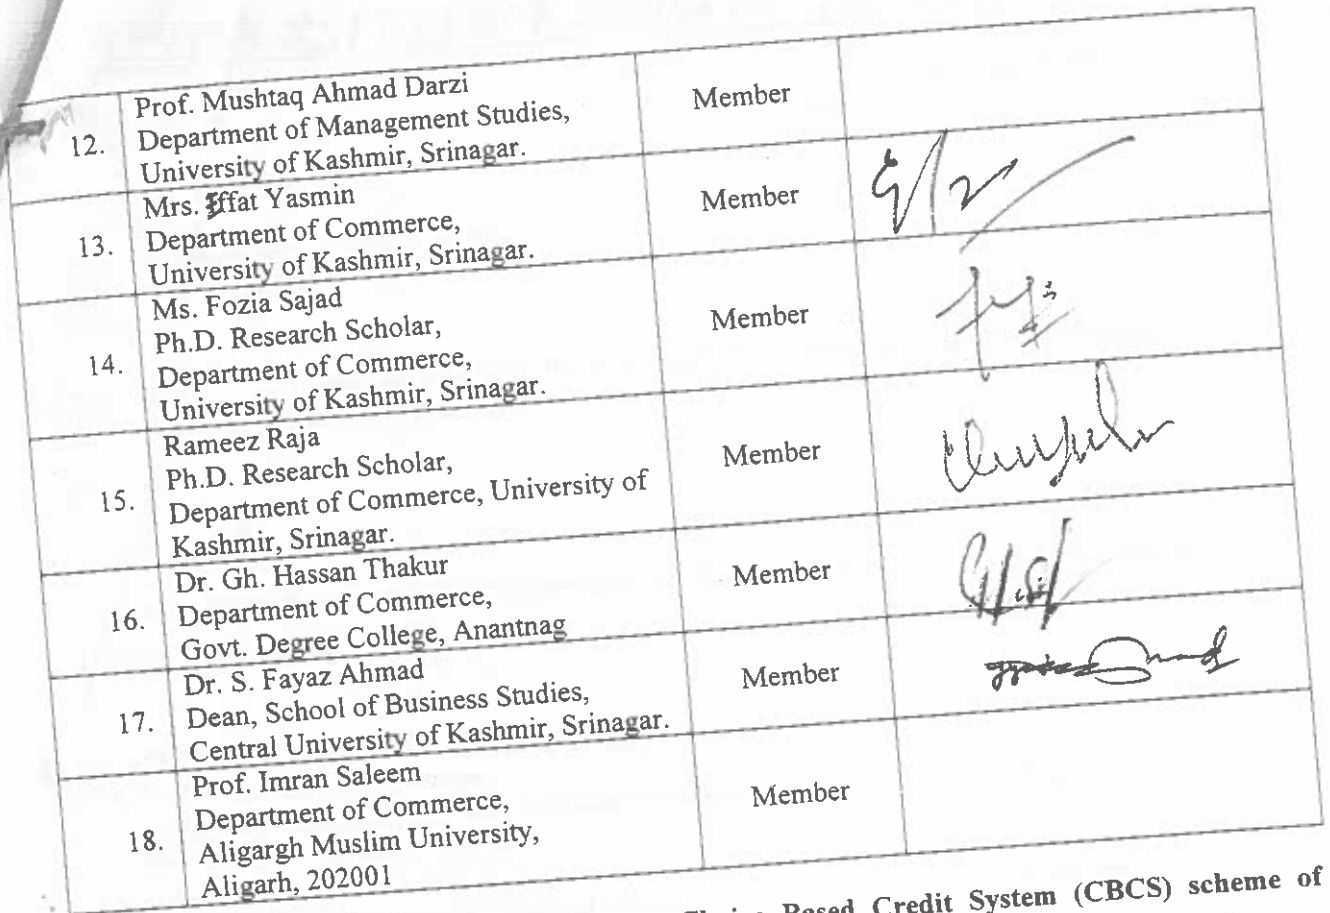 12. Prof. Mushtaq Ahmad Darzi
Department of Management Studies,
University of Kashmir, Srinagar.
Member
13. Mrs. Effat Yasmin
Department of Commerce,
University of Kashmir, Srinagar.
Member
14. Ms. Fozia Sajad
Ph.D. Research Scholar,
Department of Commerce,
University of Kashmir, Srinagar.
Member
15. Rameez Raja
Ph.D. Research Scholar,
Department of Commerce, University of
Kashmir, Srinagar.
Member
16. Dr. Gh. Hassan Thakur
Department of Commerce,
Govt. Degree College, Anantnag
Member
17. Dr. S. Fayaz Ahmad
Dean, School of Business Studies,
Central University of Kashmir, Srinagar.
Member
18. Prof. Imran Saleem
Department of Commerce,
Aligargh Muslim University,
Aligarh, 202001
Member
Based Credit System (CBCS) scheme of